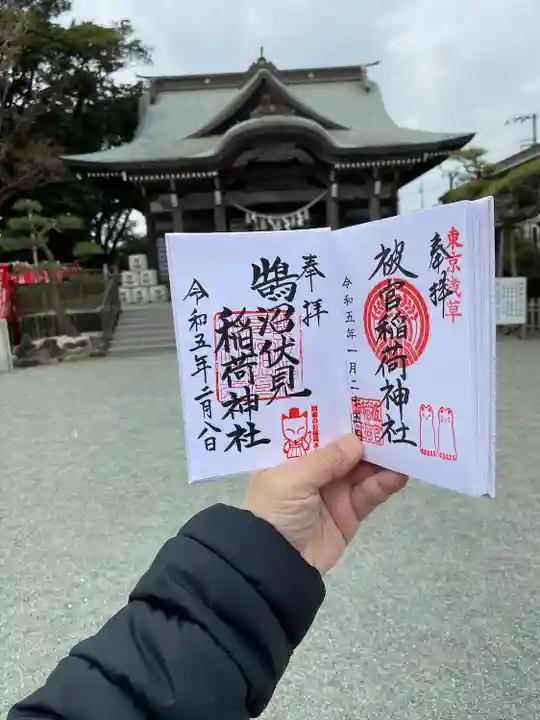 東京浅草
奉拝
被官稲荷神社
令和五年一月二
奉拝
鵠沼伏見
稲荷神社
令和五年二月八日